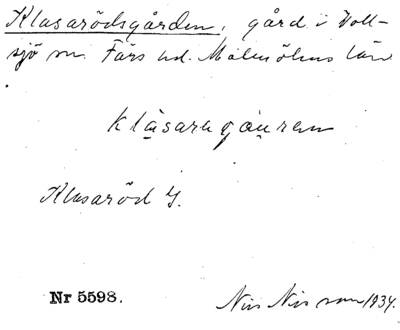 Klasarödsgården, gård i Voll-
sjö sn. Färs hd. Malmöhus län
klāsaragāuren
Klasaröd
Nr 5598.
Nils Nilsson 1934.